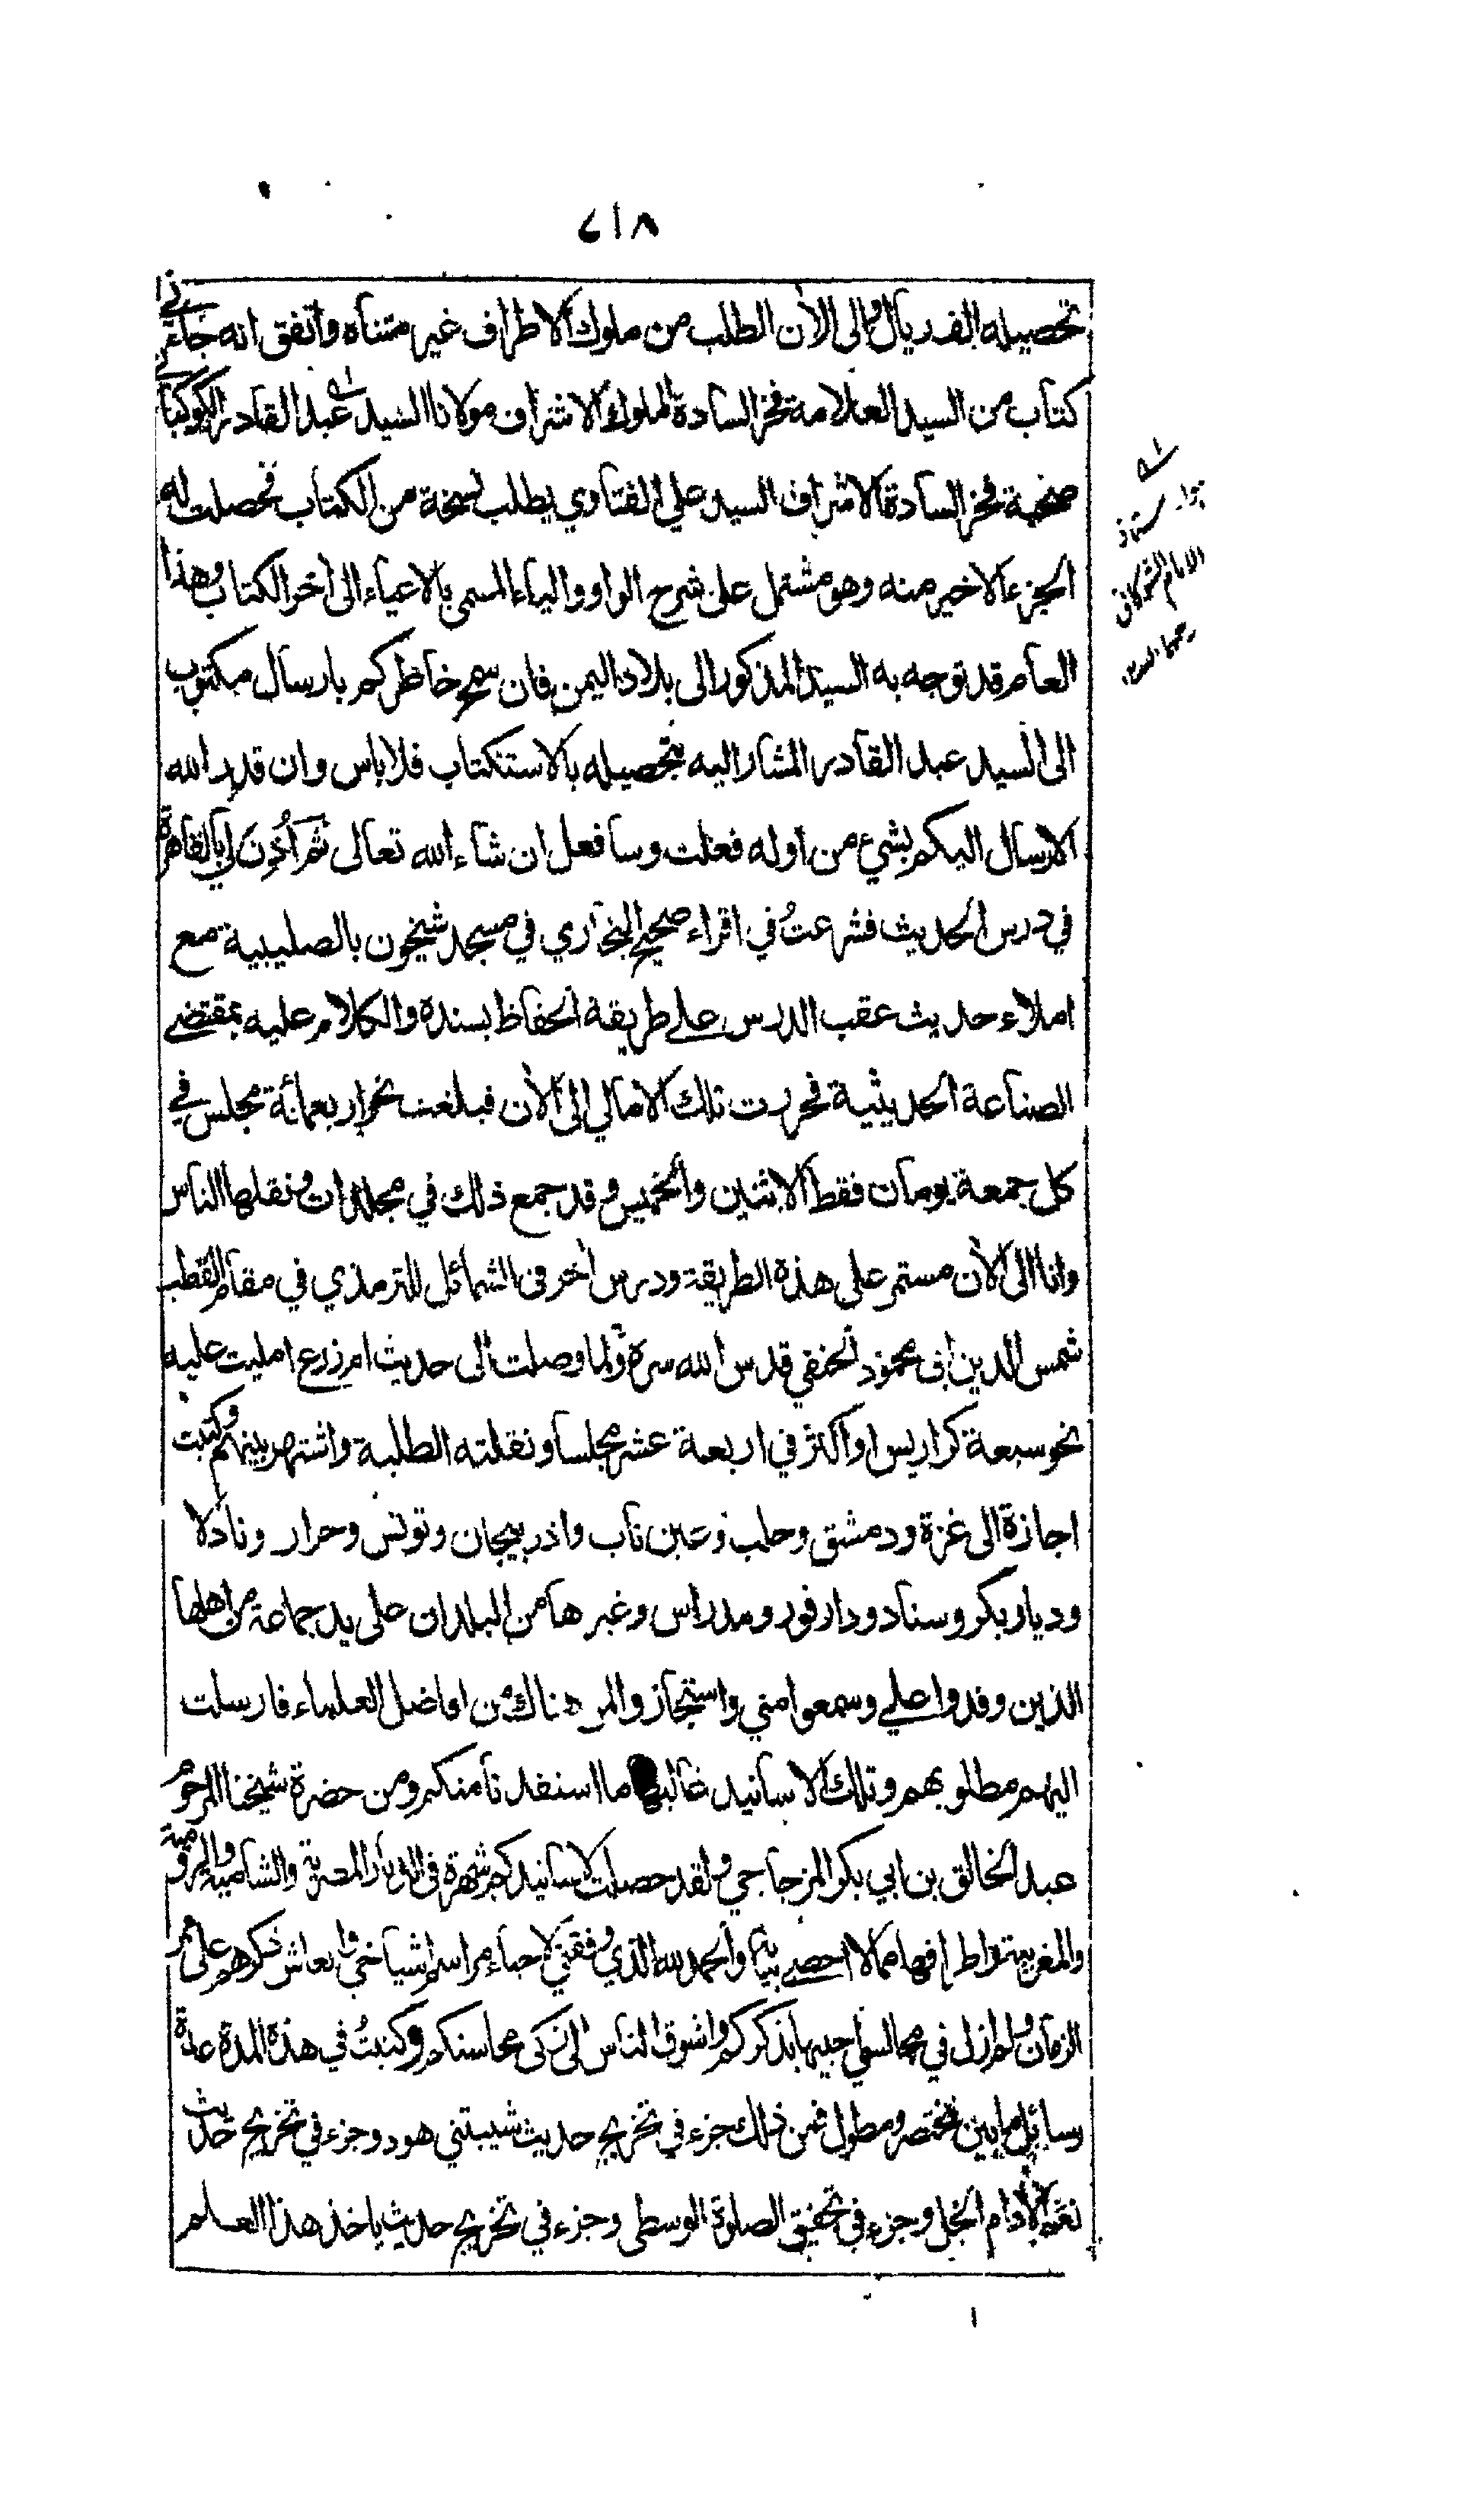 ٢١٨
تحصيله الف ريال والى الآن الطلب من ملوك الاطراف غير متناه واتفق انه جاءني
كتاب من السيد العلامة فخر السادة الملوك الاشراف مولانا السيد عبد القادر الكوكباني
صحبة فخر السادة الاشراف السيد علي القناوي يطلب نسخة من الكتاب فحصلت له
الجزء الاخير منه وهو مشتمل على شرح الواو والياء المسمى بالاحياء الى آخر الكتاب وهذا
العام قد توجه به السيد المذكور الى بلاد اليمن فان سمح خاطركم بارسال مكتوب
الى السيد عبد القادر المشار اليه بتحصيله بالاستكتاب فلا باس وان قدر الله
الارسال اليكم بشيء من اوله فعلت وسافعل ان شاء الله تعالى ثم أُذِنَ لي بالقاهرة
في درس الحديث فشرعتُ في اقراء صحيح البخاري في مسجد شيخون بالصليبية مع
املاء حديث عقب الدرس على طريقة الحفاظ بسنده والكلام عليه بمقتضى
الصناعة الحديثية فحررت تلك الامالي الى الآن فبلغت نحو اربعمائة مجلس في
كل جمعة يومان فقط الاثنين والخميس وقد جمع ذلك في مجلدات ونقلها الناس
وانا الى الآن مستمر على هذه الطريقة ودرس آخر في الشمائل للترمذي في مقام القطب
شمس الدين ابي محمود الحنفي قدس الله سره ولما وصلت الى حديث ام زرع امليت عليه
نحو سبعة كراريس او اكثر في اربعة عشر مجلسا ونقلته الطلبة واشتهر بينهم وكتبت
اجازة الى غزة ودمشق وحلب وعين تاب واذربيجان وتونس وحرار ونادلا
وديار بكر وسنار ودارفور ومدراس وغيرها من البلدان على يد جماعة من اهلها
الذين وفدوا علي وسمعوا مني واستجازوا لمن هناك من افاضل العلماء فارسلت
اليهم مطلوبهم وتلك الاسانيد غالبها ما استفدنا منكم ومن حضرة شيخنا المرحوم
عبد الخالق بن ابي بكر المزجاجي ولقد حصلت لاسانيدكم شهرة في الديار المصرية والشامية والرومية
والمغربية واطرافها مما لا احصي بيانه والحمد لله الذي وفقني لاحياء مراسم اشياخي وانعاش ذكرهم على ممر
الزمان ولم ازل في مجالسي احييها بذكركم واشوق الناس الى زكي محاسنكم وكتبتُ في هذه المدة عدة
رسائل ما بين مختصر ومطول فمن ذلك جزء في تخريج حديث شيبتني هود وجزء في تخريج حديث
نعم الادام الخل وجزء في تحقيق الصلوة الوسطى وجزء في تخريج حديث ياخذ هذا العلم
الامام الشوكاني